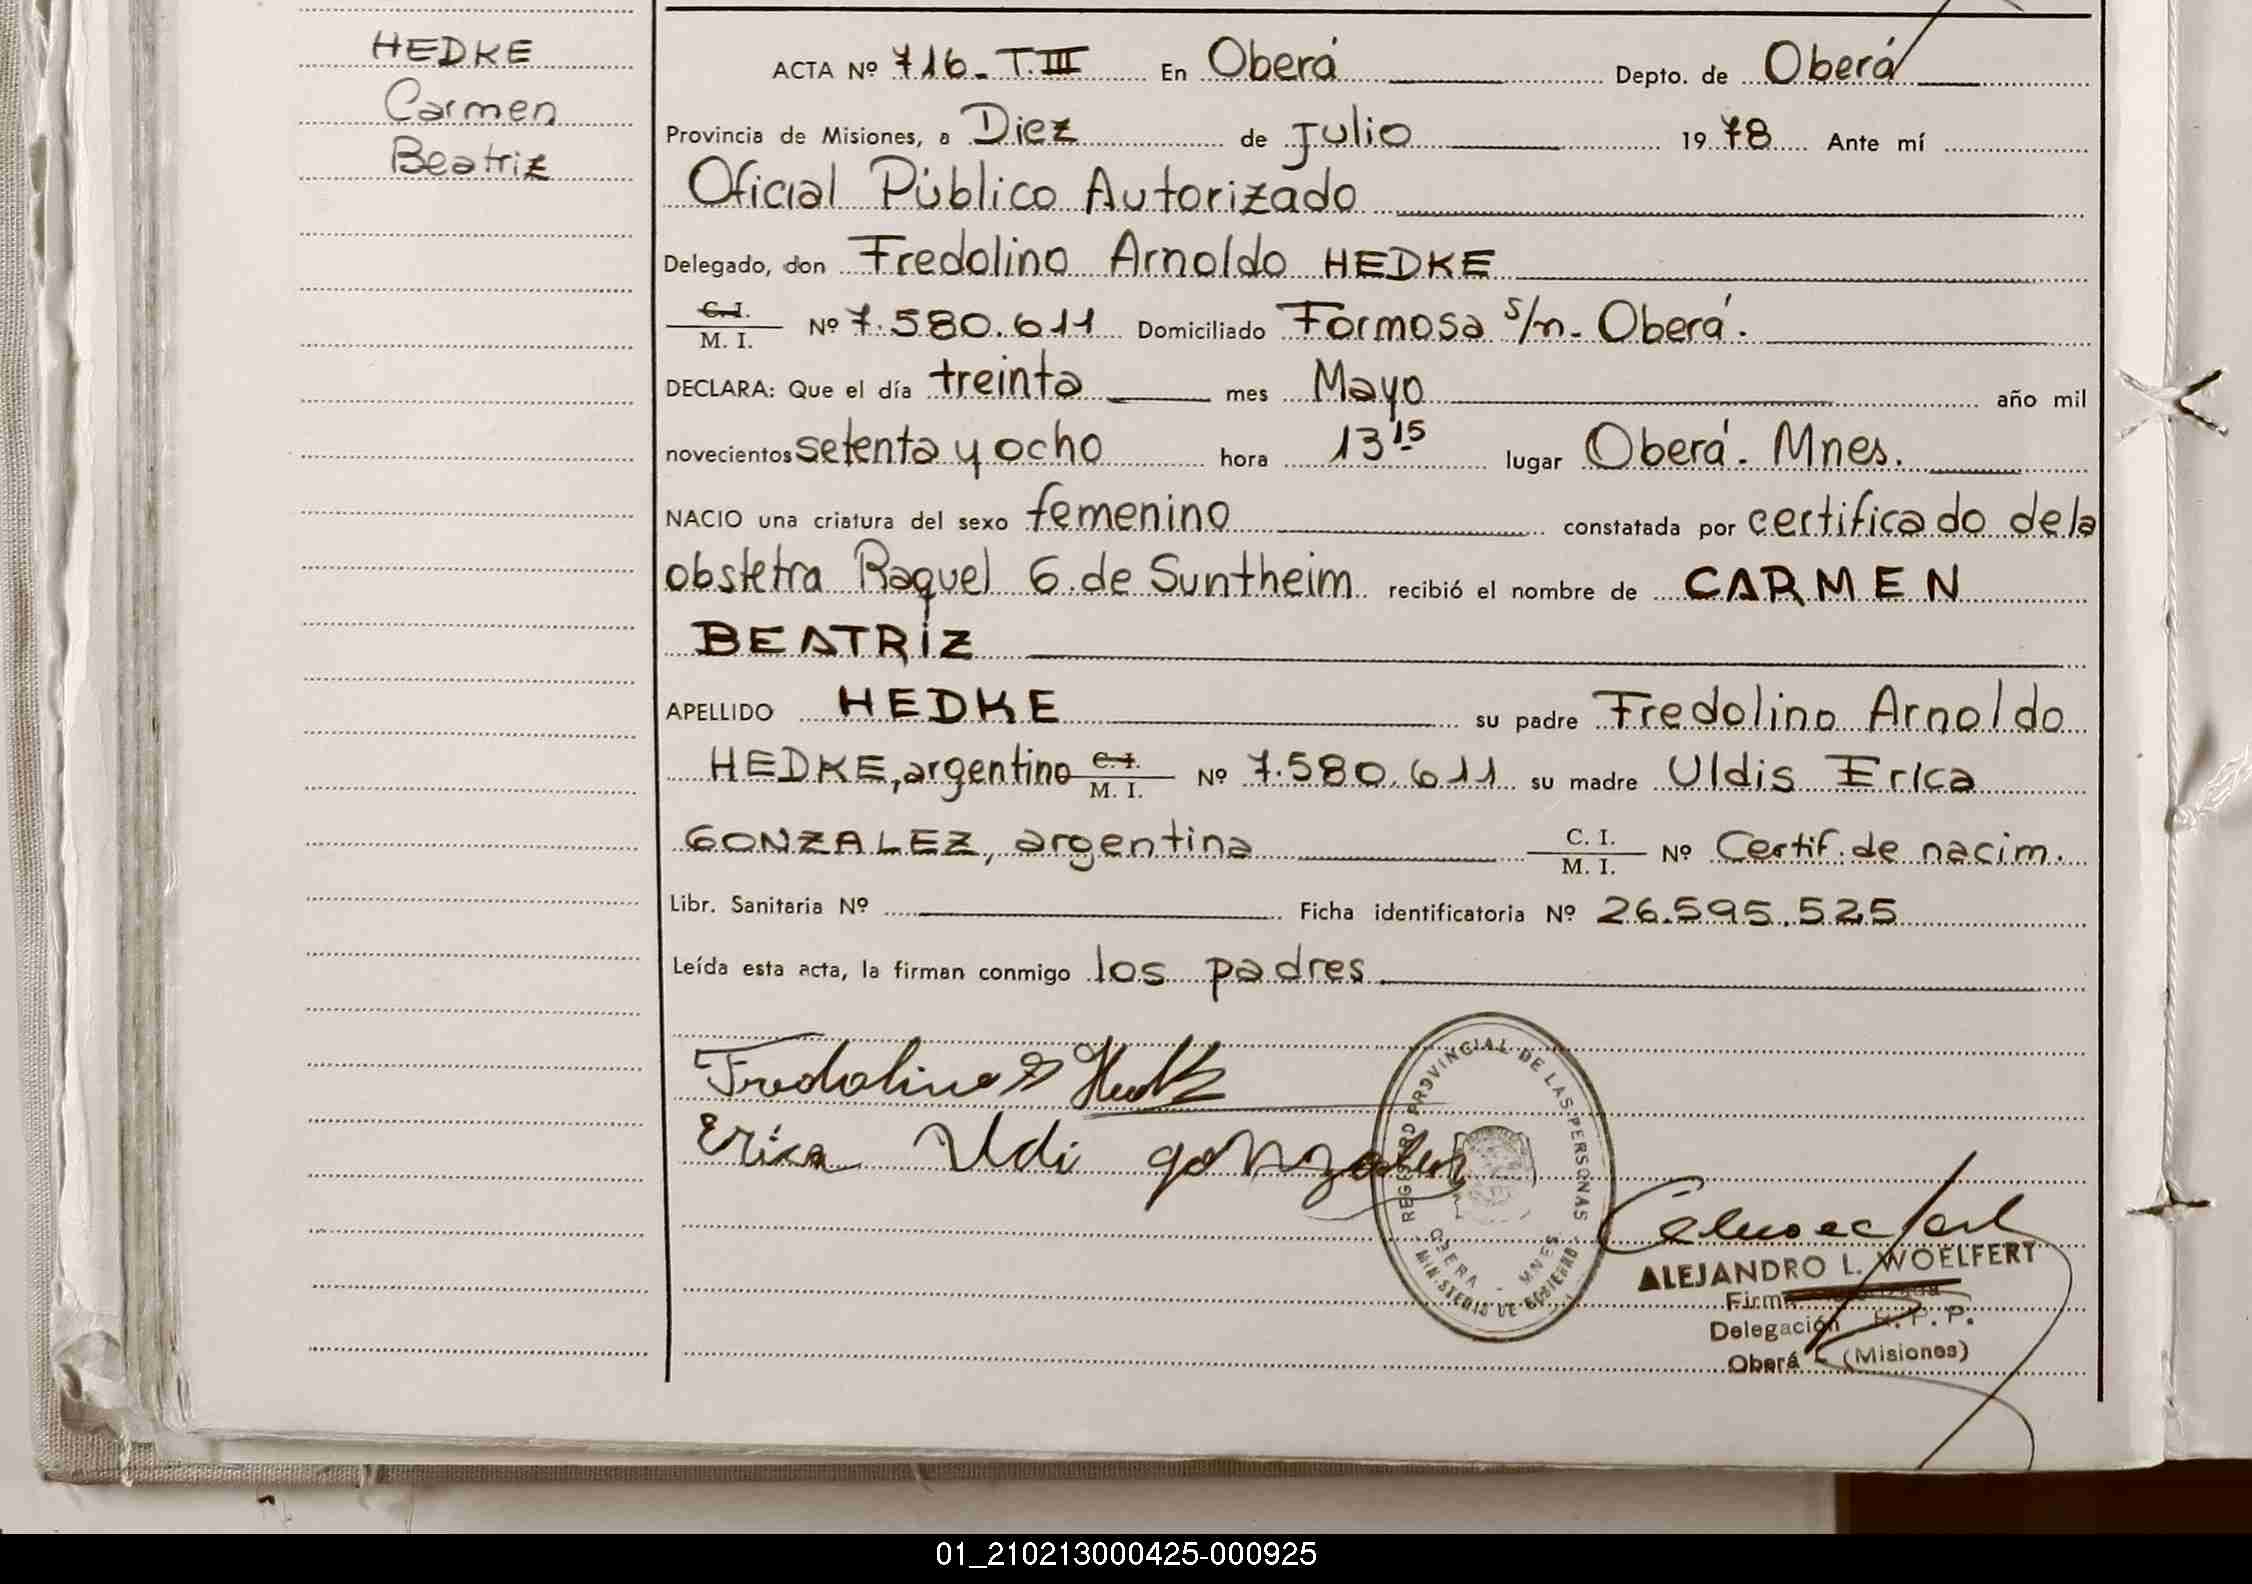 HEDKE
Carmen
Beatriz
ACTA Nº 716 - T. III En Oberá Depto. de Oberá
Provincia de Misiones, a Diez de Julio 1978 Ante mí
Oficial Público Autorizado
Delegado, don Fredolino Arnoldo HEDKE
C. I.
M. I. Nº 7.580.611 Domiciliado Formosa s/n - Oberá.
DECLARA: Que el día treinta mes Mayo año mil
novecientos setenta y ocho hora 13 15 lugar Oberá - Mnes.
NACIO una criatura del sexo femenino constatada por certificado de la
obstetra Raquel G. de Suntheim recibió el nombre de CARMEN
BEATRIZ
APELLIDO HEDKE su padre Fredolino Arnoldo
HEDKE, argentino C. I. M. I. Nº 7.580.611 su madre Uldis Erica
GONZALEZ, argentina C. I. M. I. Nº Certif. de nacim.
Libr. Sanitaria Nº Ficha identificatoria Nº 26.595.525
Leída esta acta, la firman conmigo los padres
Fredolino A Hedke
Erica Uldi gonzalez
REGISTRO PROVINCIAL DE LAS PERSONAS
OBERA - MNES
MINISTERIO DE GOBIERNO
ALEJANDRO L. WOELFERT
Firma
Delegación R. P. P.
Oberá - (Misiones)
01_210213000425-000925